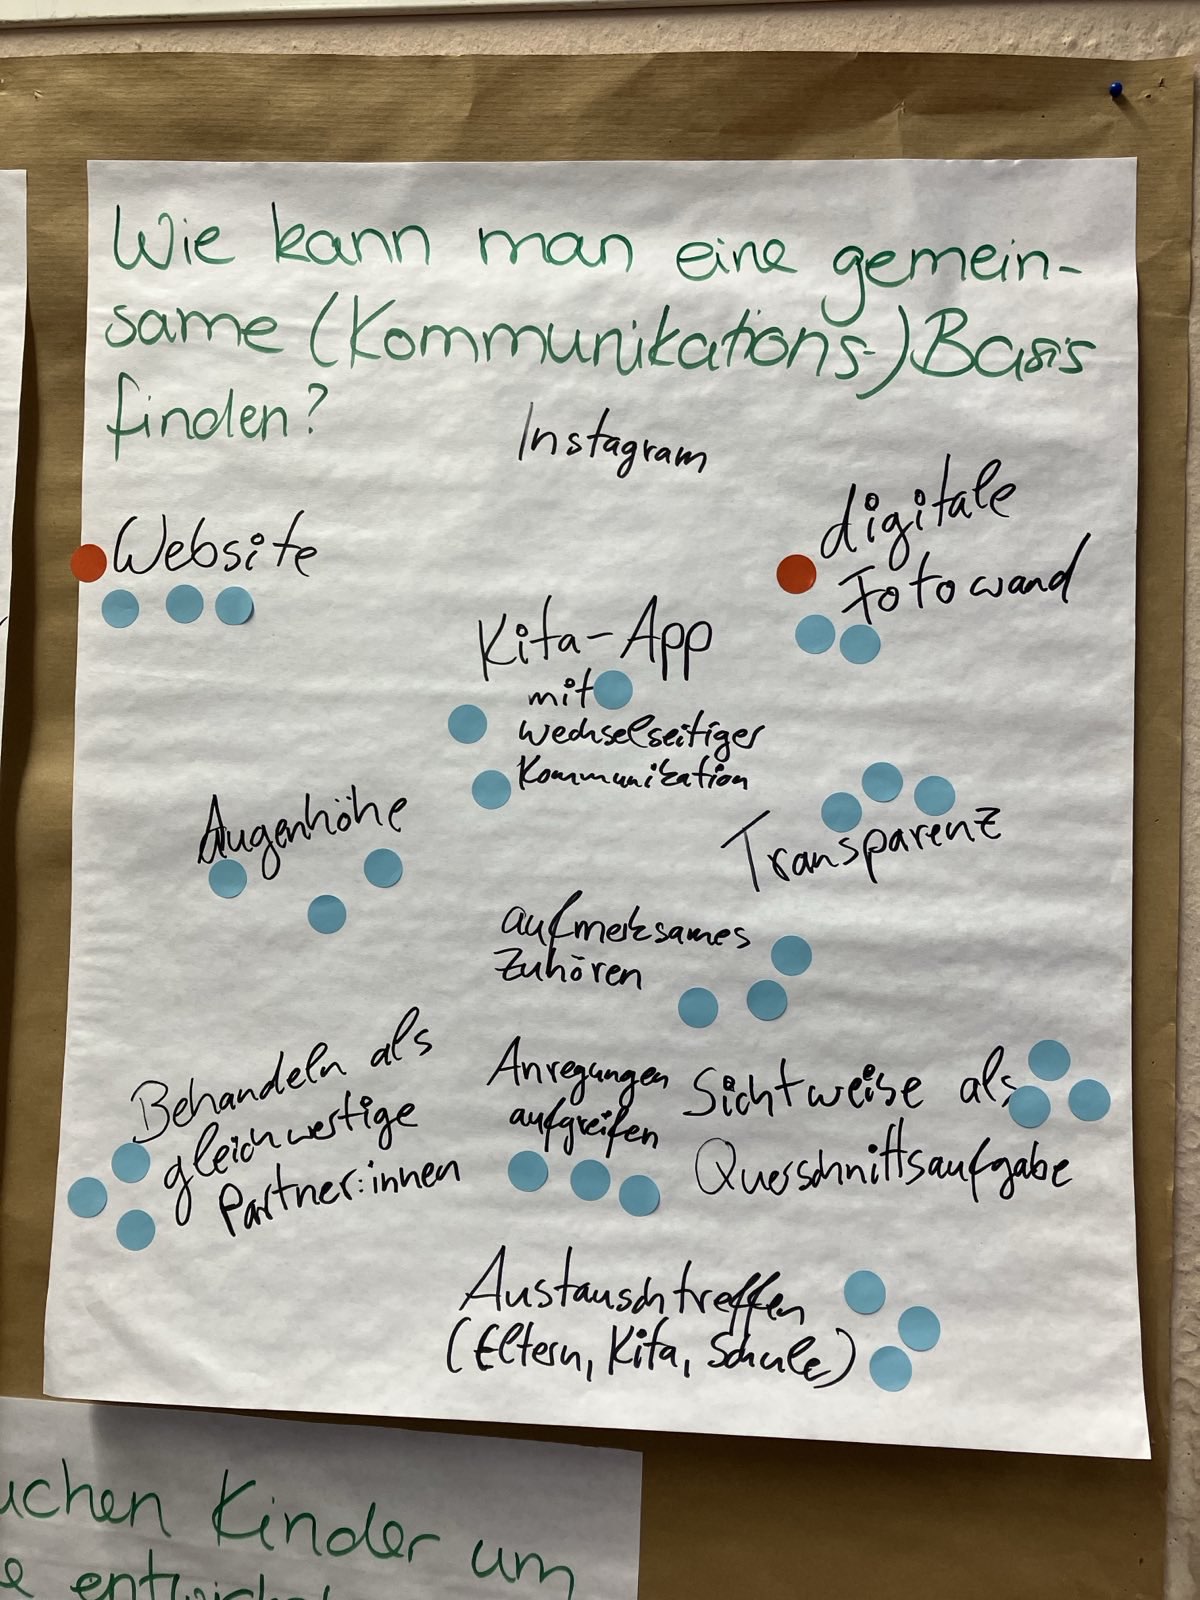 Wie kann man eine gemein-
same (Kommunikations-) Basis
finden?
Instagram
Website
digitale
Fotowand
Kita-App
mit
wechselseitiger
Kommunikation
Augenhöhe
Transparenz
aufmerksames
Zuhören
Behandeln als
gleichwertige
Partner:innen
Anregungen
aufgreifen
Sichtweise als
Querschnittsaufgabe
Austauschtreffen
(Eltern, Kita, Schule)
Kinder um